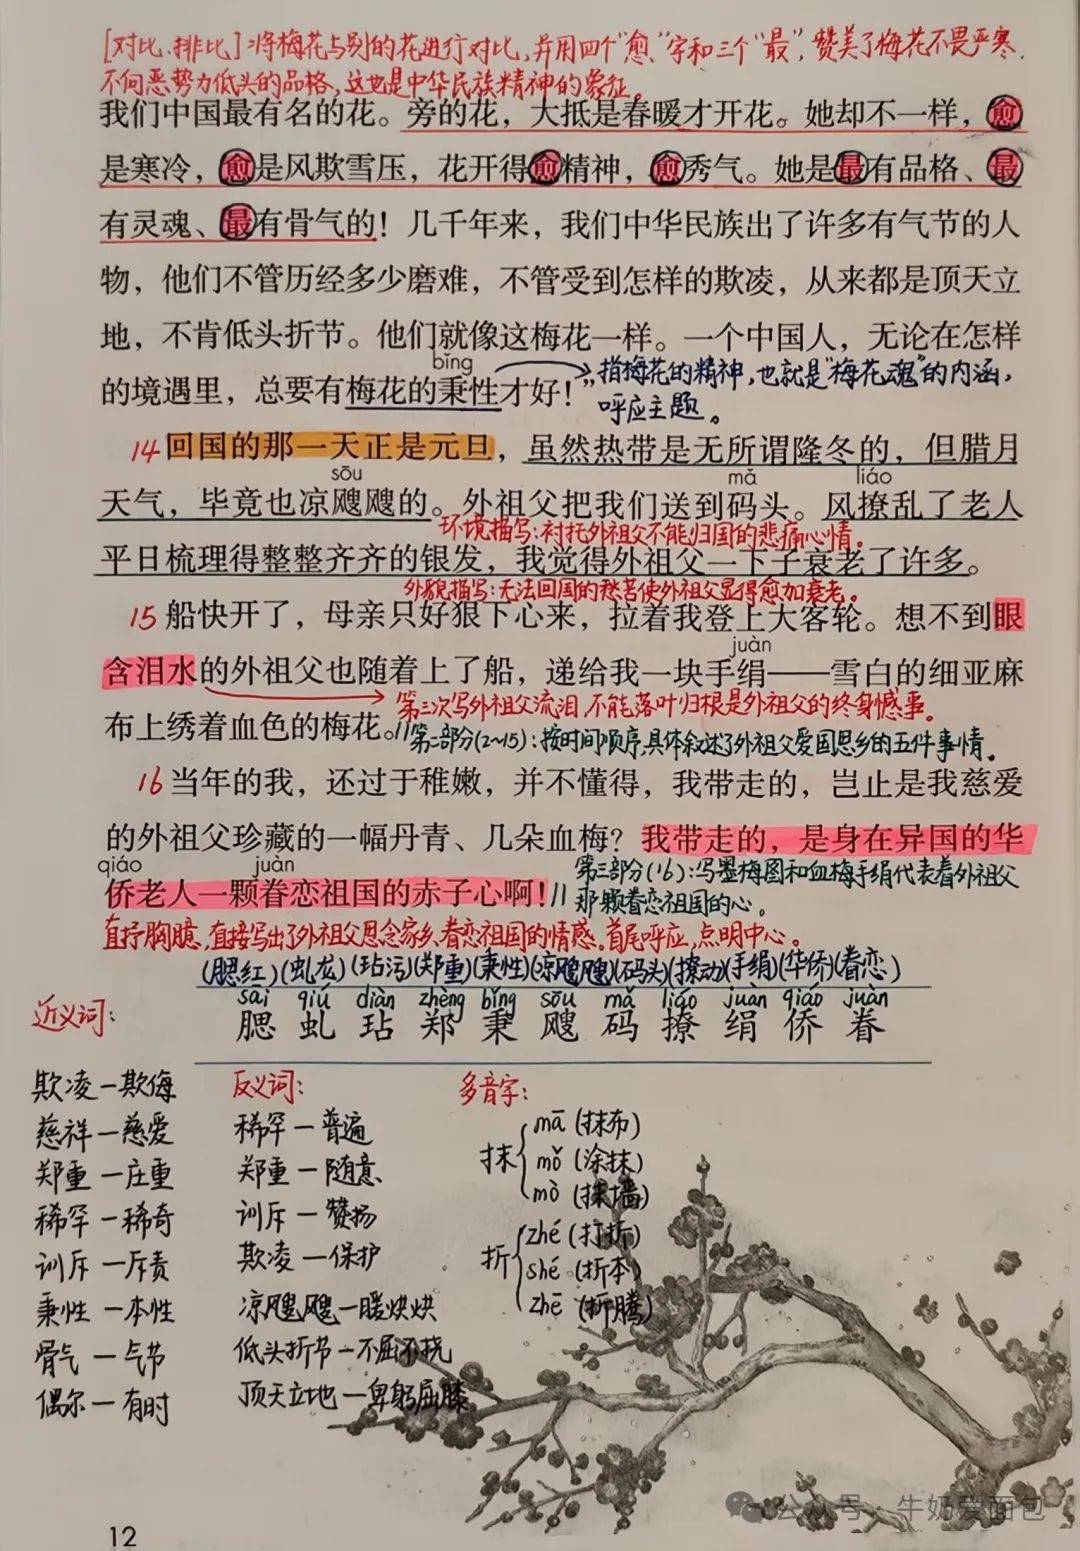 [对比、排比]:将梅花与别的花进行对比,并用四个“愈”字和三个“最”,赞美了梅花不畏严寒、
不向恶势力低头的品格,这也是中华民族精神的象征。
我们中国最有名的花。旁的花，大抵是春暖才开花。她却不一样，愈
是寒冷，愈是风欺雪压，花开得愈精神，愈秀气。她是最有品格、最
有灵魂、最有骨气的！几千年来，我们中华民族出了许多有气节的人
物，他们不管历经多少磨难，不管受到怎样的欺凌，从来都是顶天立
地，不肯低头折节。他们就像这梅花一样。一个中国人，无论在怎样
bǐng
的境遇里，总要有梅花的秉性才好！”
指梅花的精神,也就是“梅花魂”的内涵,
呼应主题。
14 回国的那一天正是元旦，虽然热带是无所谓隆冬的，但腊月
sōu mǎ liáo
天气，毕竟也凉飕飕的。外祖父把我们送到码头。风撩乱了老人
环境描写:衬托外祖父不能归国的悲痛心情。
平日梳理得整整齐齐的银发，我觉得外祖父一下子衰老了许多。
外貌描写:无法回国的愁苦使外祖父显得愈加衰老。
15 船快开了，母亲只好狠下心来，拉着我登上大客轮。想不到眼
juàn
含泪水的外祖父也随着上了船，递给我一块手绢——雪白的细亚麻
第三次写外祖父流泪,不能落叶归根是外祖父的终身憾事。
布上绣着血色的梅花。//第二部分(2~15):按时间顺序,具体叙述了外祖父爱国思乡的五件事情。
16 当年的我，还过于稚嫩，并不懂得，我带走的，岂止是我慈爱
的外祖父珍藏的一幅丹青、几朵血梅？我带走的，是身在异国的华
qiáo juàn
侨老人一颗眷恋祖国的赤子心啊！//
第三部分(16):写墨梅图和血梅手绢代表着外祖父
那颗眷恋祖国的心。
直抒胸臆,直接写出了外祖父思念家乡、眷恋祖国的情感。首尾呼应,点明中心。
(腮红)(虬龙)(玷污)(郑重)(秉性)(凉飕飕)(码头)(撩动)(手绢)(华侨)(眷恋)
sāi qiú diàn zhèng bǐng sōu mǎ liáo juàn qiáo juàn
腮 虬 玷 郑 秉 飕 码 撩 绢 侨 眷
近义词:
欺凌—欺侮
慈祥—慈爱
郑重—庄重
稀罕—稀奇
训斥—斥责
秉性—本性
骨气—气节
偶尔—有时
反义词:
稀罕—普遍
郑重—随意
训斥—赞扬
欺凌—保护
凉飕飕—暖烘烘
低头折节—不屈不挠
顶天立地—卑躬屈膝
多音字:
抹
mā (抹布)
mǒ (涂抹)
mò (抹墙)
折
zhé (打折)
shé (折本)
zhē (折腾)
12
公众号·牛奶爱面包